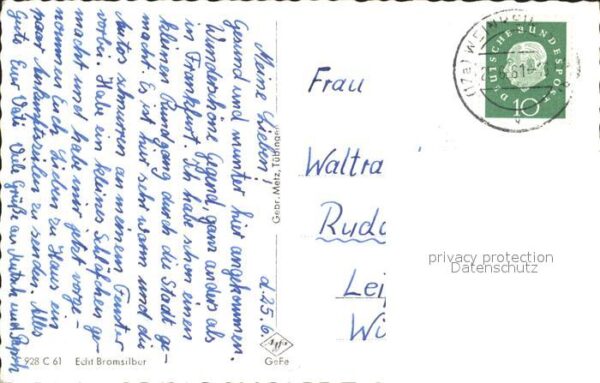 d. 25.6.
Meine Lieben!
Gesund und munter hier angekommen.
Wunderschöne Gegend, ganz anders als
in Frankfurt. Ich habe schon einen
kleinen Rundgang durch die Stadt ge-
macht. Es ist hier sehr warm und die
Autos schnurren an meinem Fenster
vorbei. Habe ein kleines Schläfchen ge-
macht und habe mir jetzt vorge-
nommen Euch Lieben zu Haus ein
paar Ankunftszeilen zu senden. Alles
Gute Eur Vati Viele Grüße an und
Gebr. Metz, Tübingen
GeFe
928 C 61 Echt Bromsilber
DEUTSCHE BUNDESPOST
10
(17a) WEINHEIM
61
Frau
Waltra
Rudo
Leip
Wi
privacy protection
Datenschutz